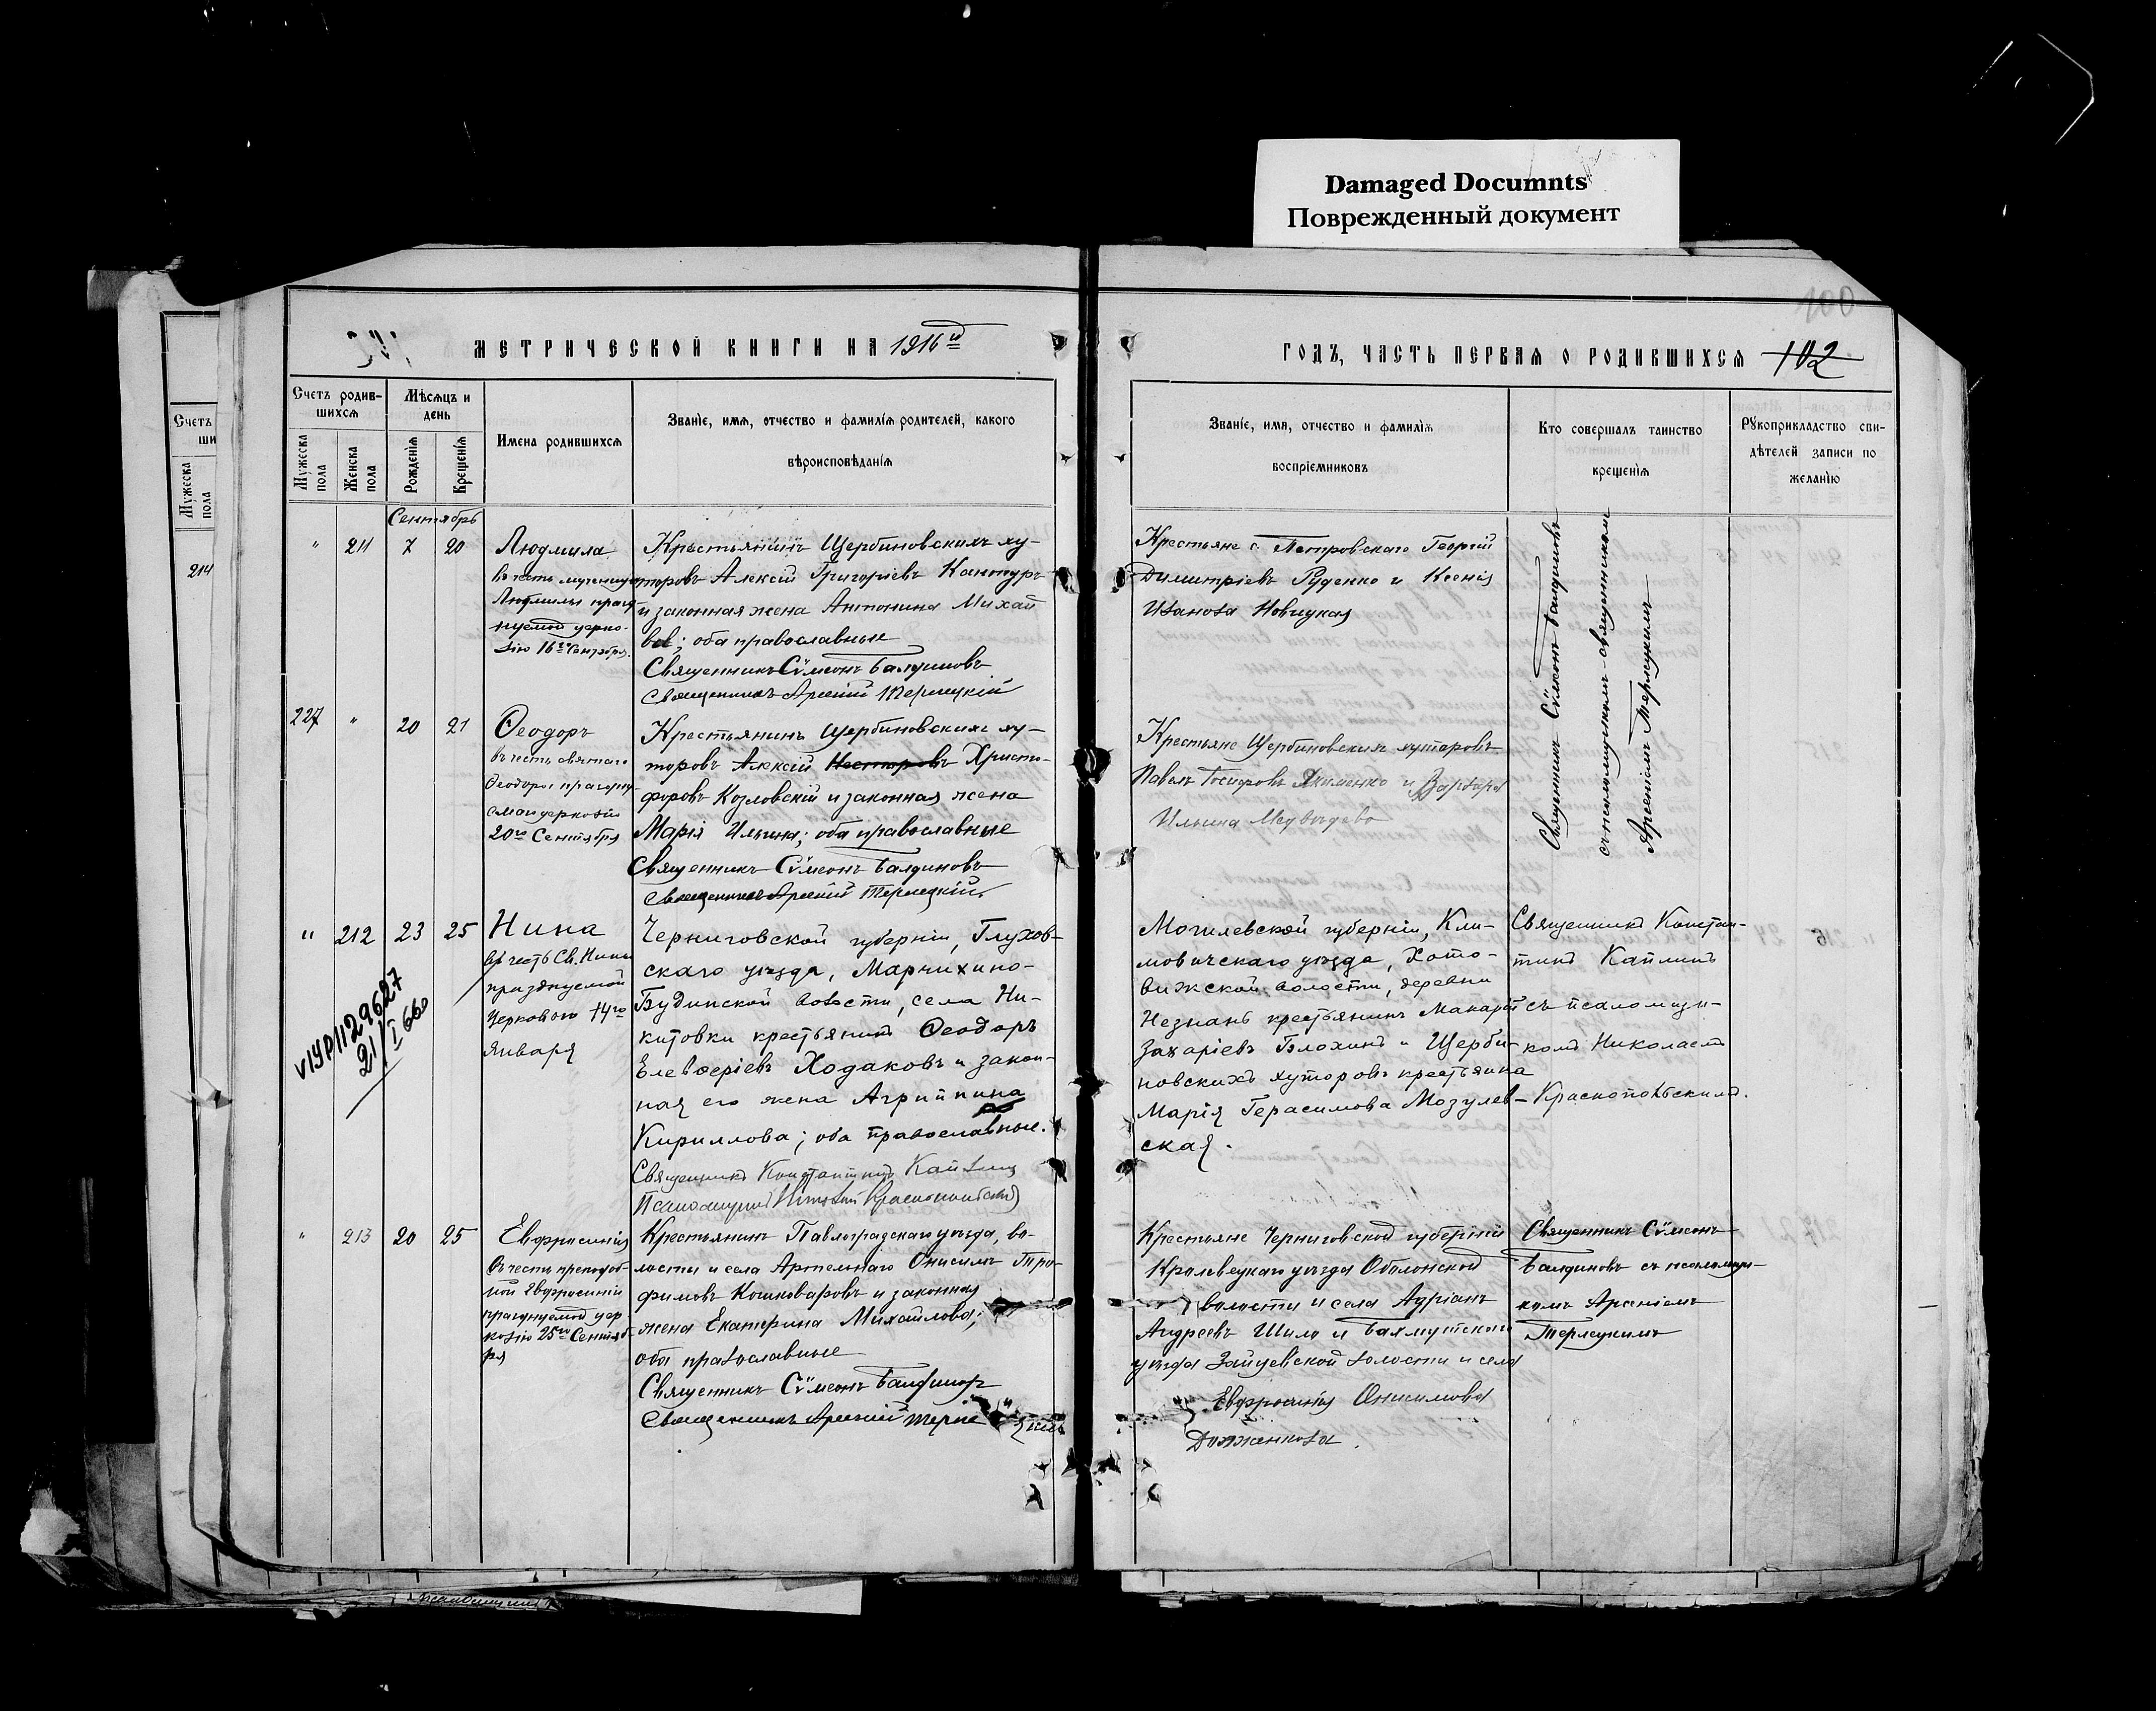 Damaged Documnts
Поврежденный документ
100
МЕТРИЧЕСКОЙ КНИГИ НА 1916й
ГОДЪ, ЧАСТЬ ПЕРВАЯ О РОДИВШИХСЯ 102
Счетъ родив-
шихся
Мужеска пола
Женска пола
Мѣсяцъ и
день
Рожденія
Крещенія
Имена родившихся
Званіе, имя, отчество и фамилія родителей, какого
вѣроисповѣданія
Званіе, имя, отчество и фамилія
воспріемниковъ
Кто совершалъ таинство
крещенія
Рукоприкладство сви-
дѣтелей записи по
желанію
Счетъ
ши
Мужеска пола
214
Сентябрь
" 211 7 20
Людмила
въ честь мученицы
Людмилы празд-
нуемой церко-
вію 16го Сентября.
Крестьянинъ Щербиновскихъ ху-
торовъ Алексій Григоріевъ Кантуръ
и законная жена Антонина Михай
ва; оба православные
Священникъ Сѵмеонъ Балдиновъ
Священникъ Арсеній Терлецкій
Крестьяне с. Петровскаго Георгій
Димитріевъ Руденко и Ксенія
Иванова Новицкая
Священникъ Сѵмеонъ Балдиновъ
съ псаломщикомъ-священникомъ
Арсеніемъ Терлецкимъ
227 " 20 21
Ѳеодоръ
въ честь святаго
Ѳеодора праздну-
емаго церковію
20го Сентября
Крестьянинъ Щербиновскихъ ху-
торовъ Алексій Несторовъ Христо-
форовъ Козловскій и законная жена
Марія Ильина; оба православные
Священникъ Сѵмеонъ Балдиновъ
Священникъ Арсеній Терлецкій
Крестьяне Щербиновскихъ хуторовъ
Павелъ Іосифовъ Якименко и Варвара
Ильина Медвѣдева
" 212 23 25
Нина
въ честь Св. Нины
празднуемой
Церковью 14го
Января
VIЯР1129627
21/I 660
Черниговской губерніи, Глухов-
скаго уѣзда, Марчихино-
Будинской волости, села Ни-
китовки крестьянинъ Ѳеодоръ
Елевѳеріевъ Ходаковъ и закон-
ная его жена Агриппина
Кириллова; оба православные.
Священникъ Константинъ Каплинъ
Псаломщикъ Николай Краснопольскій
Могилевской губерніи, Кли-
мовичскаго уѣзда, Хото-
вижской волости, деревни
Незнань крестьянинъ Макарій
Захаріевъ Блохинъ и Щерби-
новскихъ хуторовъ крестьянка
Марія Герасимова Мозулев-
ская.
Священникъ Констан-
тинъ Каплинъ
съ псаломщи-
комъ Николаемъ
Краснопольскимъ.
" 213 20 25
Евфросинія
въ честь преподоб-
ной Евфросиніи
празднуемой цер
ковію 25го Сентяб-
ря
Крестьянинъ Павлоградскаго уѣзда, во-
лости и села Артельнаго Онисимъ Тро-
фимовъ Кошковаровъ и законная
жена Екатерина Михайлова;
оба православные
Священникъ Сѵмеонъ Балдиновъ
Священникъ Арсеній Терле
Крестьяне Черниговской губерніи
Кролевецкаго уѣзда Оболонской
волости и села Адріанъ
Андреевъ Шило и Бахмутскаго
уѣзда Зайцевской волости и села
Евфросинія Онисимова
Должанкова.
Священникъ Сѵмеонъ
Балдиновъ съ псаломщи-
комъ Арсеніемъ
Терлецкимъ